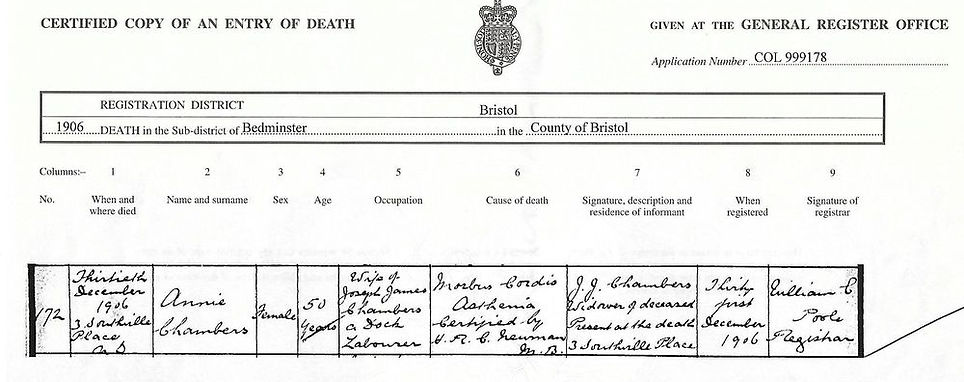 CERTIFIED COPY OF AN ENTRY OF DEATH
GIVEN AT THE GENERAL REGISTER OFFICE
Application Number COL 999178
REGISTRATION DISTRICT Bristol
1906 DEATH in the Sub-district of Bedminster in the County of Bristol
Columns:- 1 2 3 4 5 6 7 8 9
No. When and where died Name and surname Sex Age Occupation Cause of death Signature, description and residence of informant When registered Signature of registrar
172
Thirtieth
December
1906
3 Southville
Place
Annie
Chambers
Female
50
Years
Wife of
Joseph James
Chambers
a Dock
Labourer
Morbus Cordis
Asthenia
Certified by
H. A. C. Newman
M.B.
J. J. Chambers
Widower of deceased
Present at the death
3 Southville Place
Thirty
first
December
1906
William C
Poole
Registrar